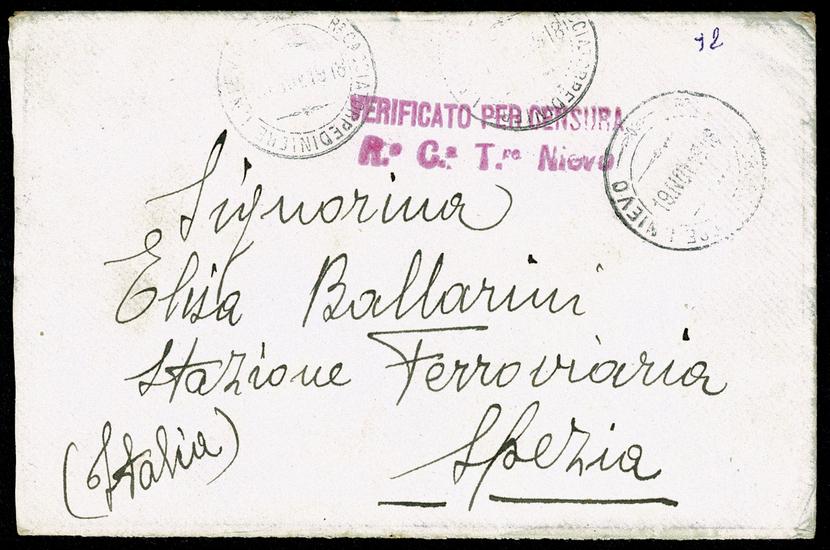 92
VERIFICATO PER CENSURA
R.ª C.ª T.re Nievo
NIEVO
Signorina
Elisa Ballarini
Stazione Ferroviaria
Spezia
(Italia)